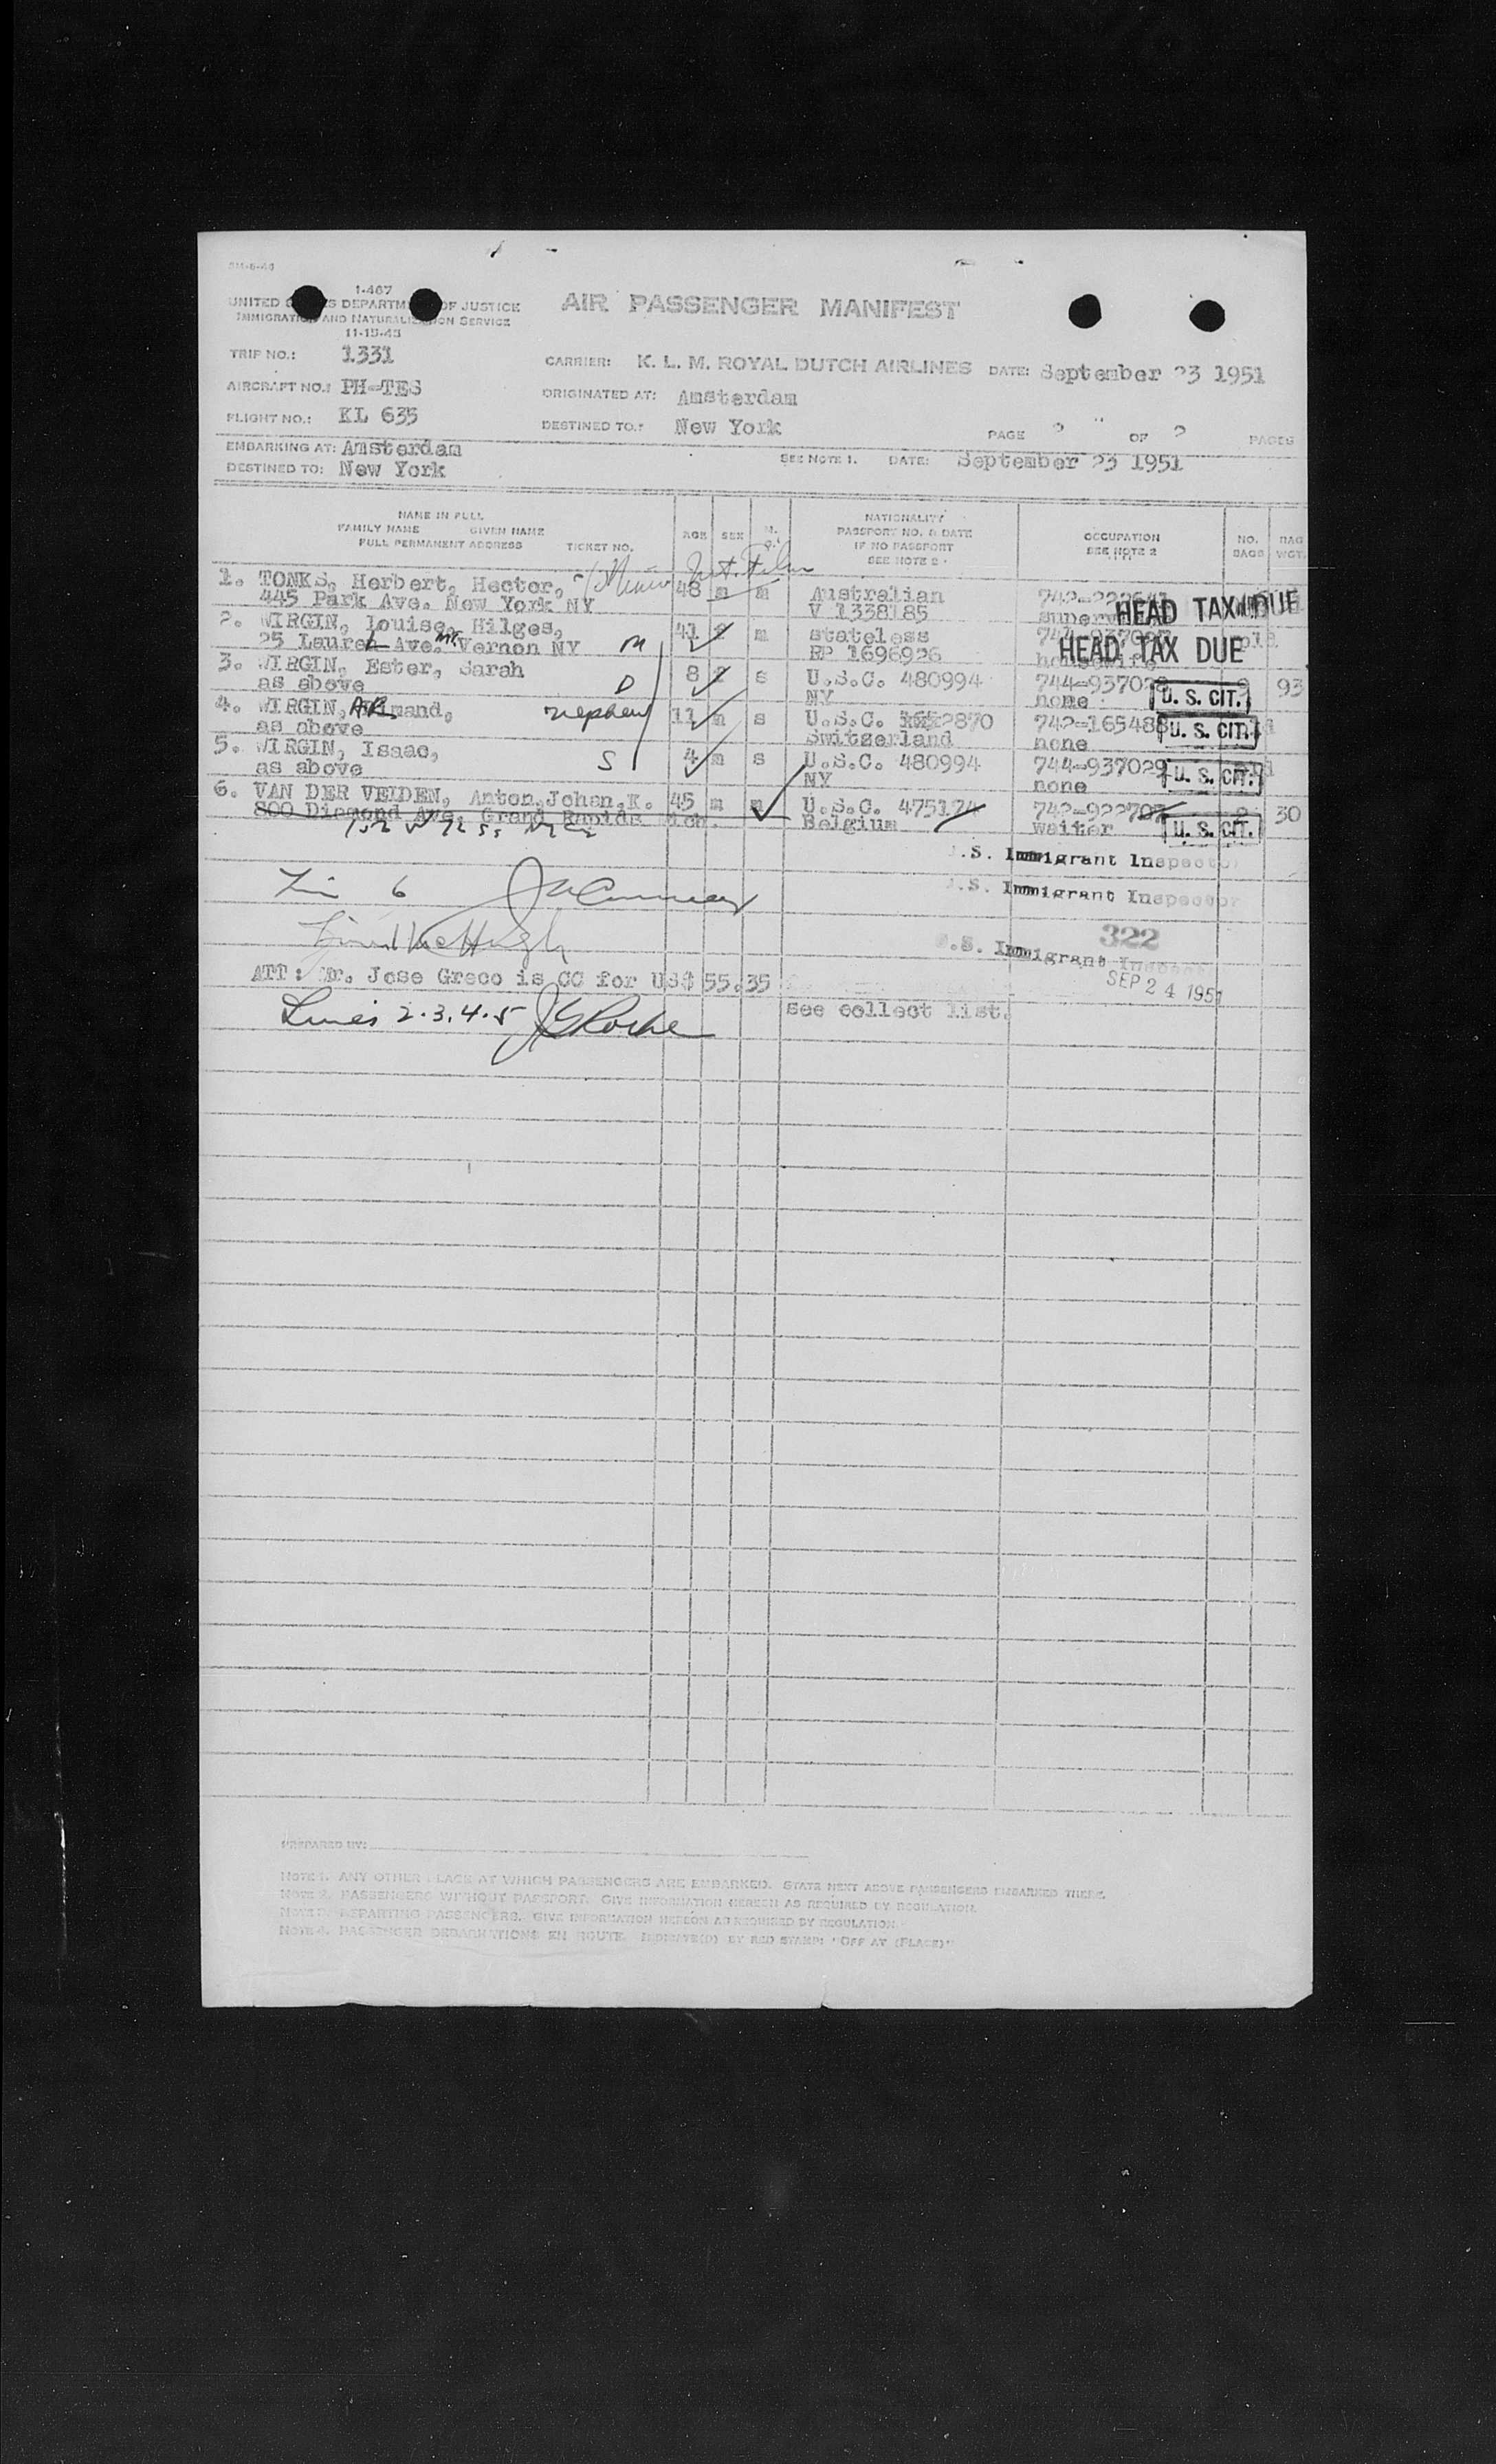 I-467
UNITED STATES DEPARTMENT OF JUSTICE
IMMIGRATION AND NATURALIZATION SERVICE
11-15-43
AIR PASSENGER MANIFEST
TRIP NO.: 1331
CARRIER: K. L. M. ROYAL DUTCH AIRLINES DATE: September 23 1951
AIRCRAFT NO.: PH-TES
ORIGINATED AT: Amsterdam
FLIGHT NO.: KL 635
DESTINED TO.: New York
PAGE 2 OF 2 PAGES
EMBARKING AT: Amsterdam
SEE NOTE 1. DATE: September 23 1951
DESTINED TO: New York
NAME IN FULL
FAMILY NAME GIVEN NAME
FULL PERMANENT ADDRESS TICKET NO.
AGE SEX
NATIONALITY
PASSPORT NO. & DATE
IF NO PASSPORT
SEE NOTE 2
OCCUPATION
SEE NOTE 2
NO. BAGS
BAG WGT.
1. TONKS, Herbert, Hector, 48 m m Australian
445 Park Ave. New York NY V 1338185 HEAD TAX DUE
2. WIRGIN, Louise, Hilges, 41 f m stateless
25 Laurel Ave. Mt. Vernon NY M RP 1696926 housewife HEAD TAX DUE
3. WIRGIN, Ester, Sarah 8 f s U.S.C. 480994 744-937028 93
as above D NY none U. S. CIT.
4. WIRGIN, ARmand, nephew 11 m s U.S.C. 2870 742-165488
as above Switzerland none U. S. CIT.
5. WIRGIN, Isaac, S 4 m s U.S.C. 480994 744-937029
as above NY none U. S. CIT.
6. VAN DER VELDEN, Anton,Johan,K. 45 m m U.S.C. 475124 742-922707 2 30
800 Diamond Ave. Grand Rapids Mich. Belgium waiter U. S. CIT.
U.S. Immigrant Inspector
6
U.S. Immigrant Inspector
322
U.S. Immigrant Inspector
ATT: Mr. Jose Greco is CC for US$ 55.35
SEP 24 1951
Lines 2.3.4.5
see collect list.
PREPARED BY:
NOTE 1. ANY OTHER PLACE AT WHICH PASSENGERS ARE EMBARKED. STATE NEXT ABOVE PASSENGERS EMBARKED THERE.
NOTE 2. PASSENGERS WITHOUT PASSPORT. GIVE INFORMATION HEREON AS REQUIRED BY REGULATION.
NOTE 3. DEPARTING PASSENGERS. GIVE INFORMATION HEREON AS REQUIRED BY REGULATION.
NOTE 4. PASSENGER DEBARKATIONS EN ROUTE. INDICATE(D) BY RED STAMP: "OFF AT (PLACE)"